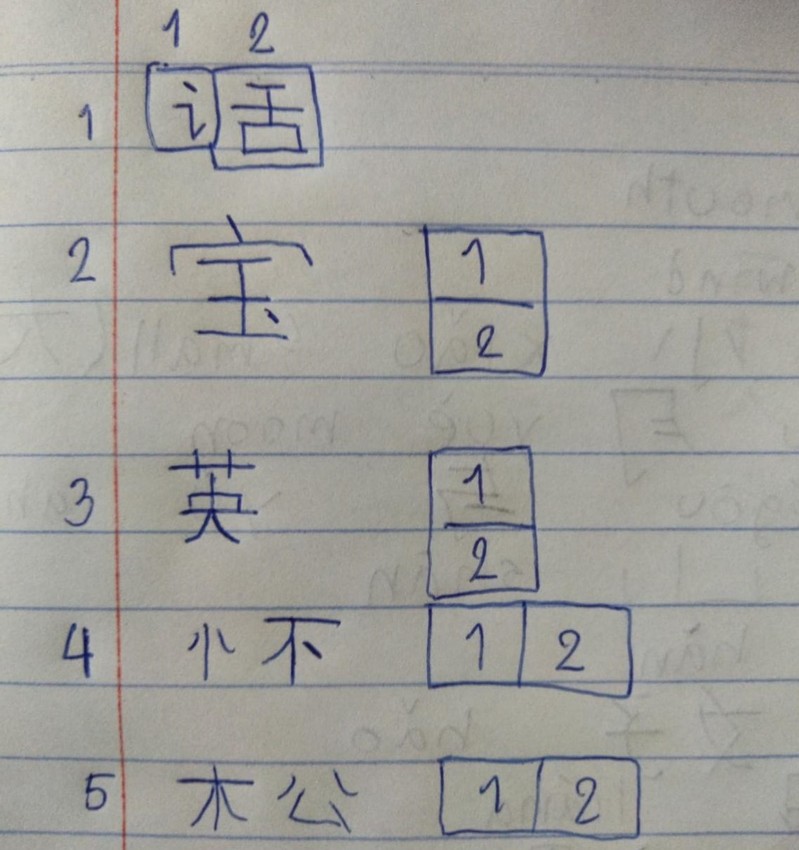 1 2
1 话
2 宝 1 2
3 英 1 2
4 忄不 1 2
5 木公 1 2